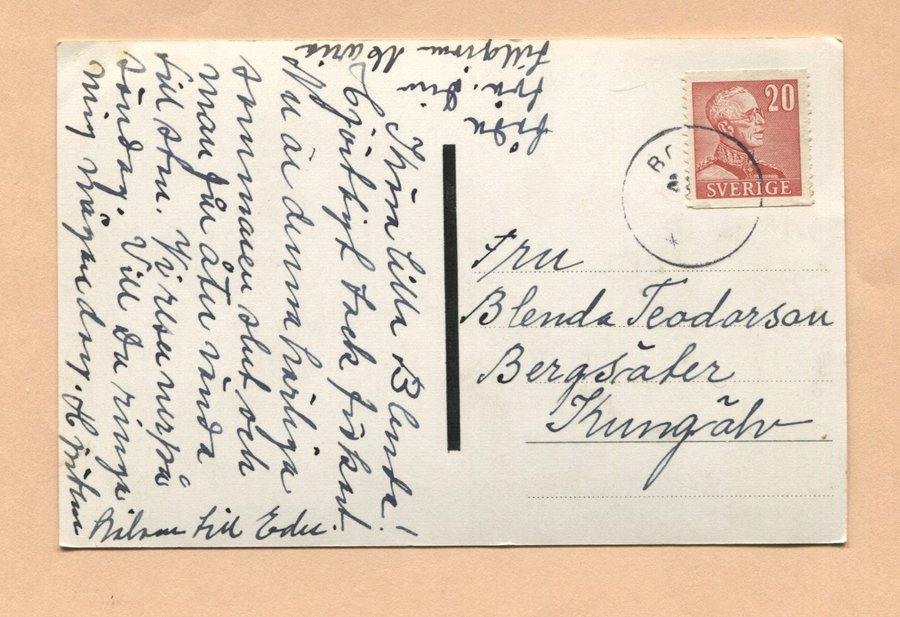 Kära lilla Blenda!
Hjärtligt tack för kort
Nu är denna härliga
sommaren slut och
man får åter vända
till stan. Vi reser på
söndag. Vill du ringa
mig någon dag. Hjärtliga
hälsn till Eder.
från Din
Maria
20
SVERIGE
BO
Fru
Blenda Teodorson
Bergsäter
Kungälv